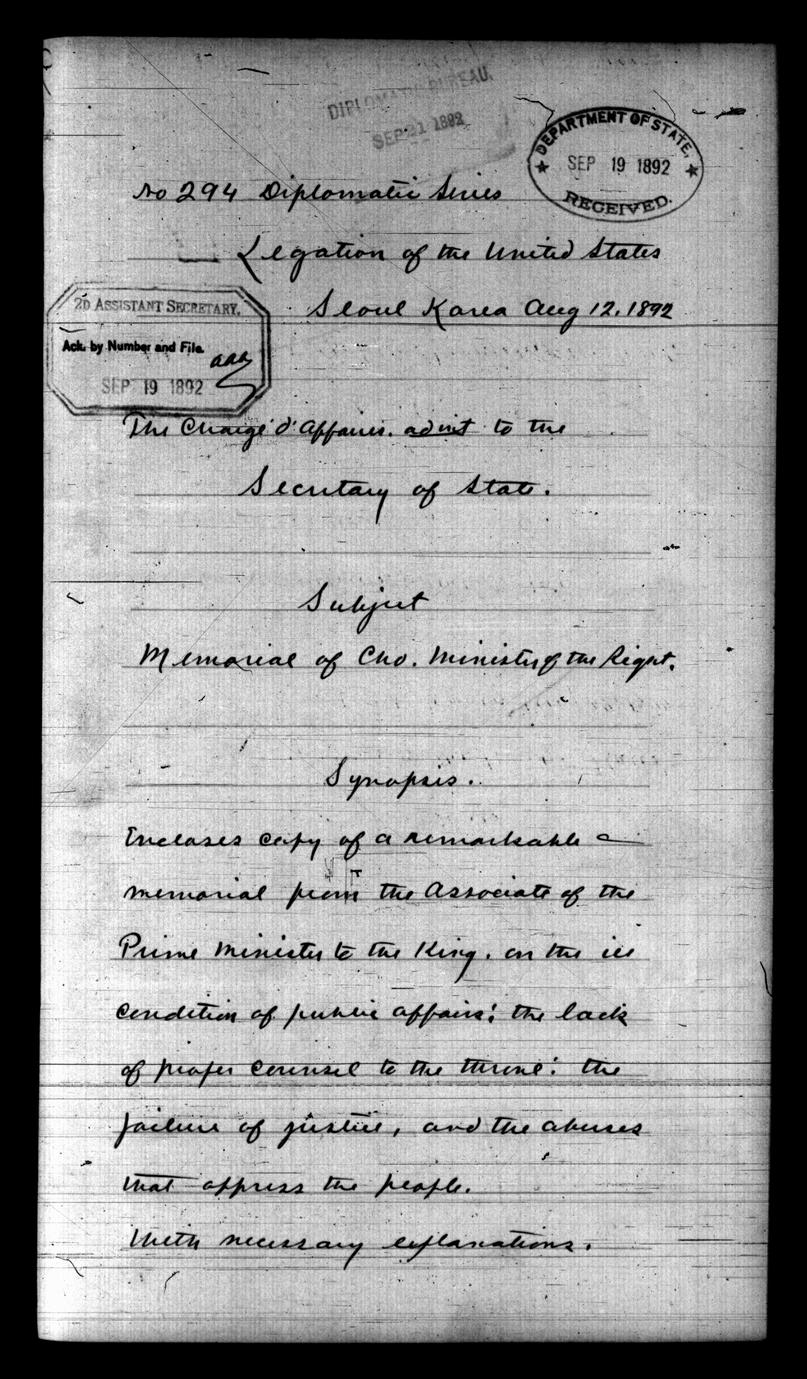 DIPLOMATIC BUREAU.
SEP 21 1892
DEPARTMENT OF STATE.
SEP 19 1892
RECEIVED.
No 294 Diplomatic Series
Legation of the United States
Seoul Korea Aug 12. 1892
2D ASSISTANT SECRETARY.
Ack. by Number and File.
SEP 19 1892
The Chargé d'Affaires. ad int to the
Secretary of State.
Subject
Memorial of Cho. Minister of the Right.
Synopsis.
Encloses copy of a remarkable
memorial from the Associate of the
Prime Minister to the King. on the ill
condition of public affairs: the lack
of proper counsel to the throne: the
failure of justice, and the abuses
that oppress the people.
With necessary explanations.